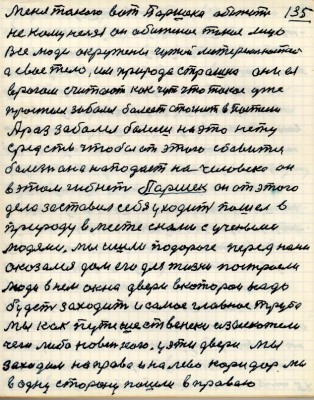 Меня такого вот Паршека обижать 135
не кому нельзя он обитание такое лицо
Все люди окружены чужой материальностей
а свое тело, им природа страшна они ея
врагом считают как чуть что такое уже
простыл заболел болеет стонит в постели
А раз заболел болиш на это нету
средств чтобы от этого избавится
болезнь она нападает на человека он
в этом гибнет Паршек он от этого
дела заставил себя уходить пошел в
природу в месте с нами с учеными
людями. мы ишли по дороге перед нами
оказался дом его для жизни построили
люди в нем окна двери в которои надо
будеть заходить и самое главное труба
Мы как путишественики изыскатели
чего либо новенького. у эти двери мы
заходим на право и на лево коридор мы
в одну сторону пошли в правою